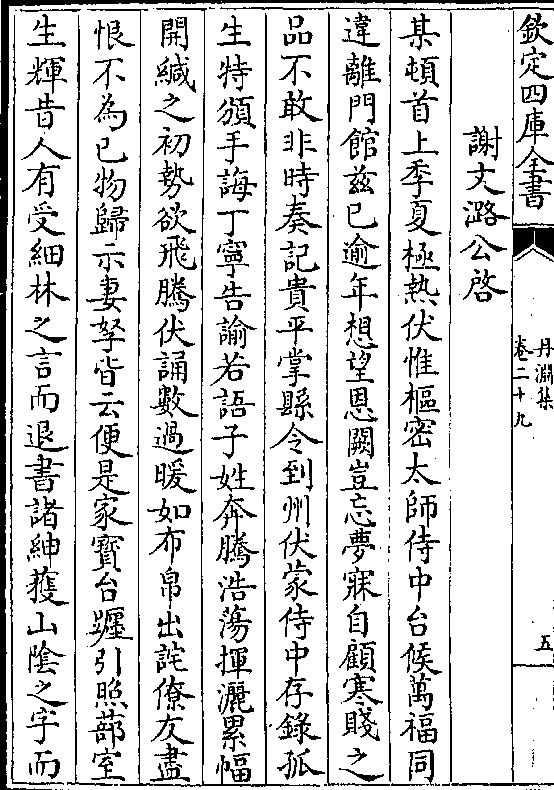 欽定四庫全書
丹淵集
卷二十九
五
謝文潞公啓
某頓首上季夏極熱伏惟樞密太師侍中台候萬福同
違離門館兹已逾年想望恩闕豈忘夢寐自顧寒賤之
品不敢非時奏記貴平掌縣令到州伏蒙侍中存錄孤
生特頒手誨丁寧告諭若語子姓奔騰浩蕩揮灑累幅
開緘之初勢欲飛騰伏誦數過暖如布帛出詫僚友盡
恨不為已物歸示妻孥皆云便是家寳台躔引照蔀室
生輝昔人有受細林之言而退書諸紳獲山陰之字而